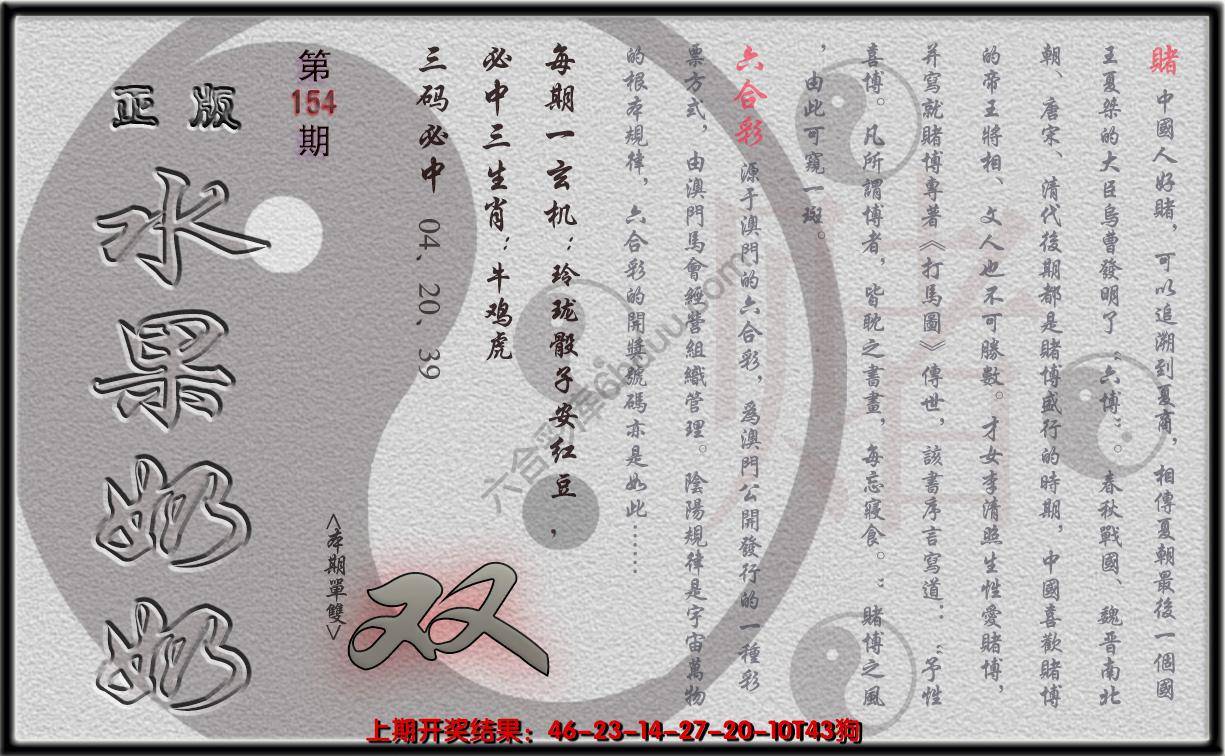 賭 中國人好賭，可以追溯到夏商，相傳夏朝最後一個國
王夏桀的大臣烏曹發明了“六博”。春秋戰國、魏晋南北
朝、唐宋、清代後期都是賭博盛行的時期，中國喜歡賭博
的帝王將相、文人也不可勝數。才女李清照生性愛賭博，
并寫就賭博專著《打馬圖》傳世，該書序言寫道：“予性
喜博。凡所謂博者，皆耽之書畫，每忘寢食。”賭博之風
，由此可窺一斑。
六合彩 源于澳門的六合彩，爲澳門公開發行的一種彩
票方式，由澳門馬會經營組織管理。陰陽規律是宇宙萬物
的根本規律，六合彩的開獎號碼亦是如此……
每期一玄机：玲珑骰子安红豆，
必中三生肖：牛鸡虎
三码必中 04、20、39
第154期
<本期單雙>
双
正版
水果奶奶
賭
六合彩库6huuu.com
上期开奖结果：46-23-14-27-20-10T43狗